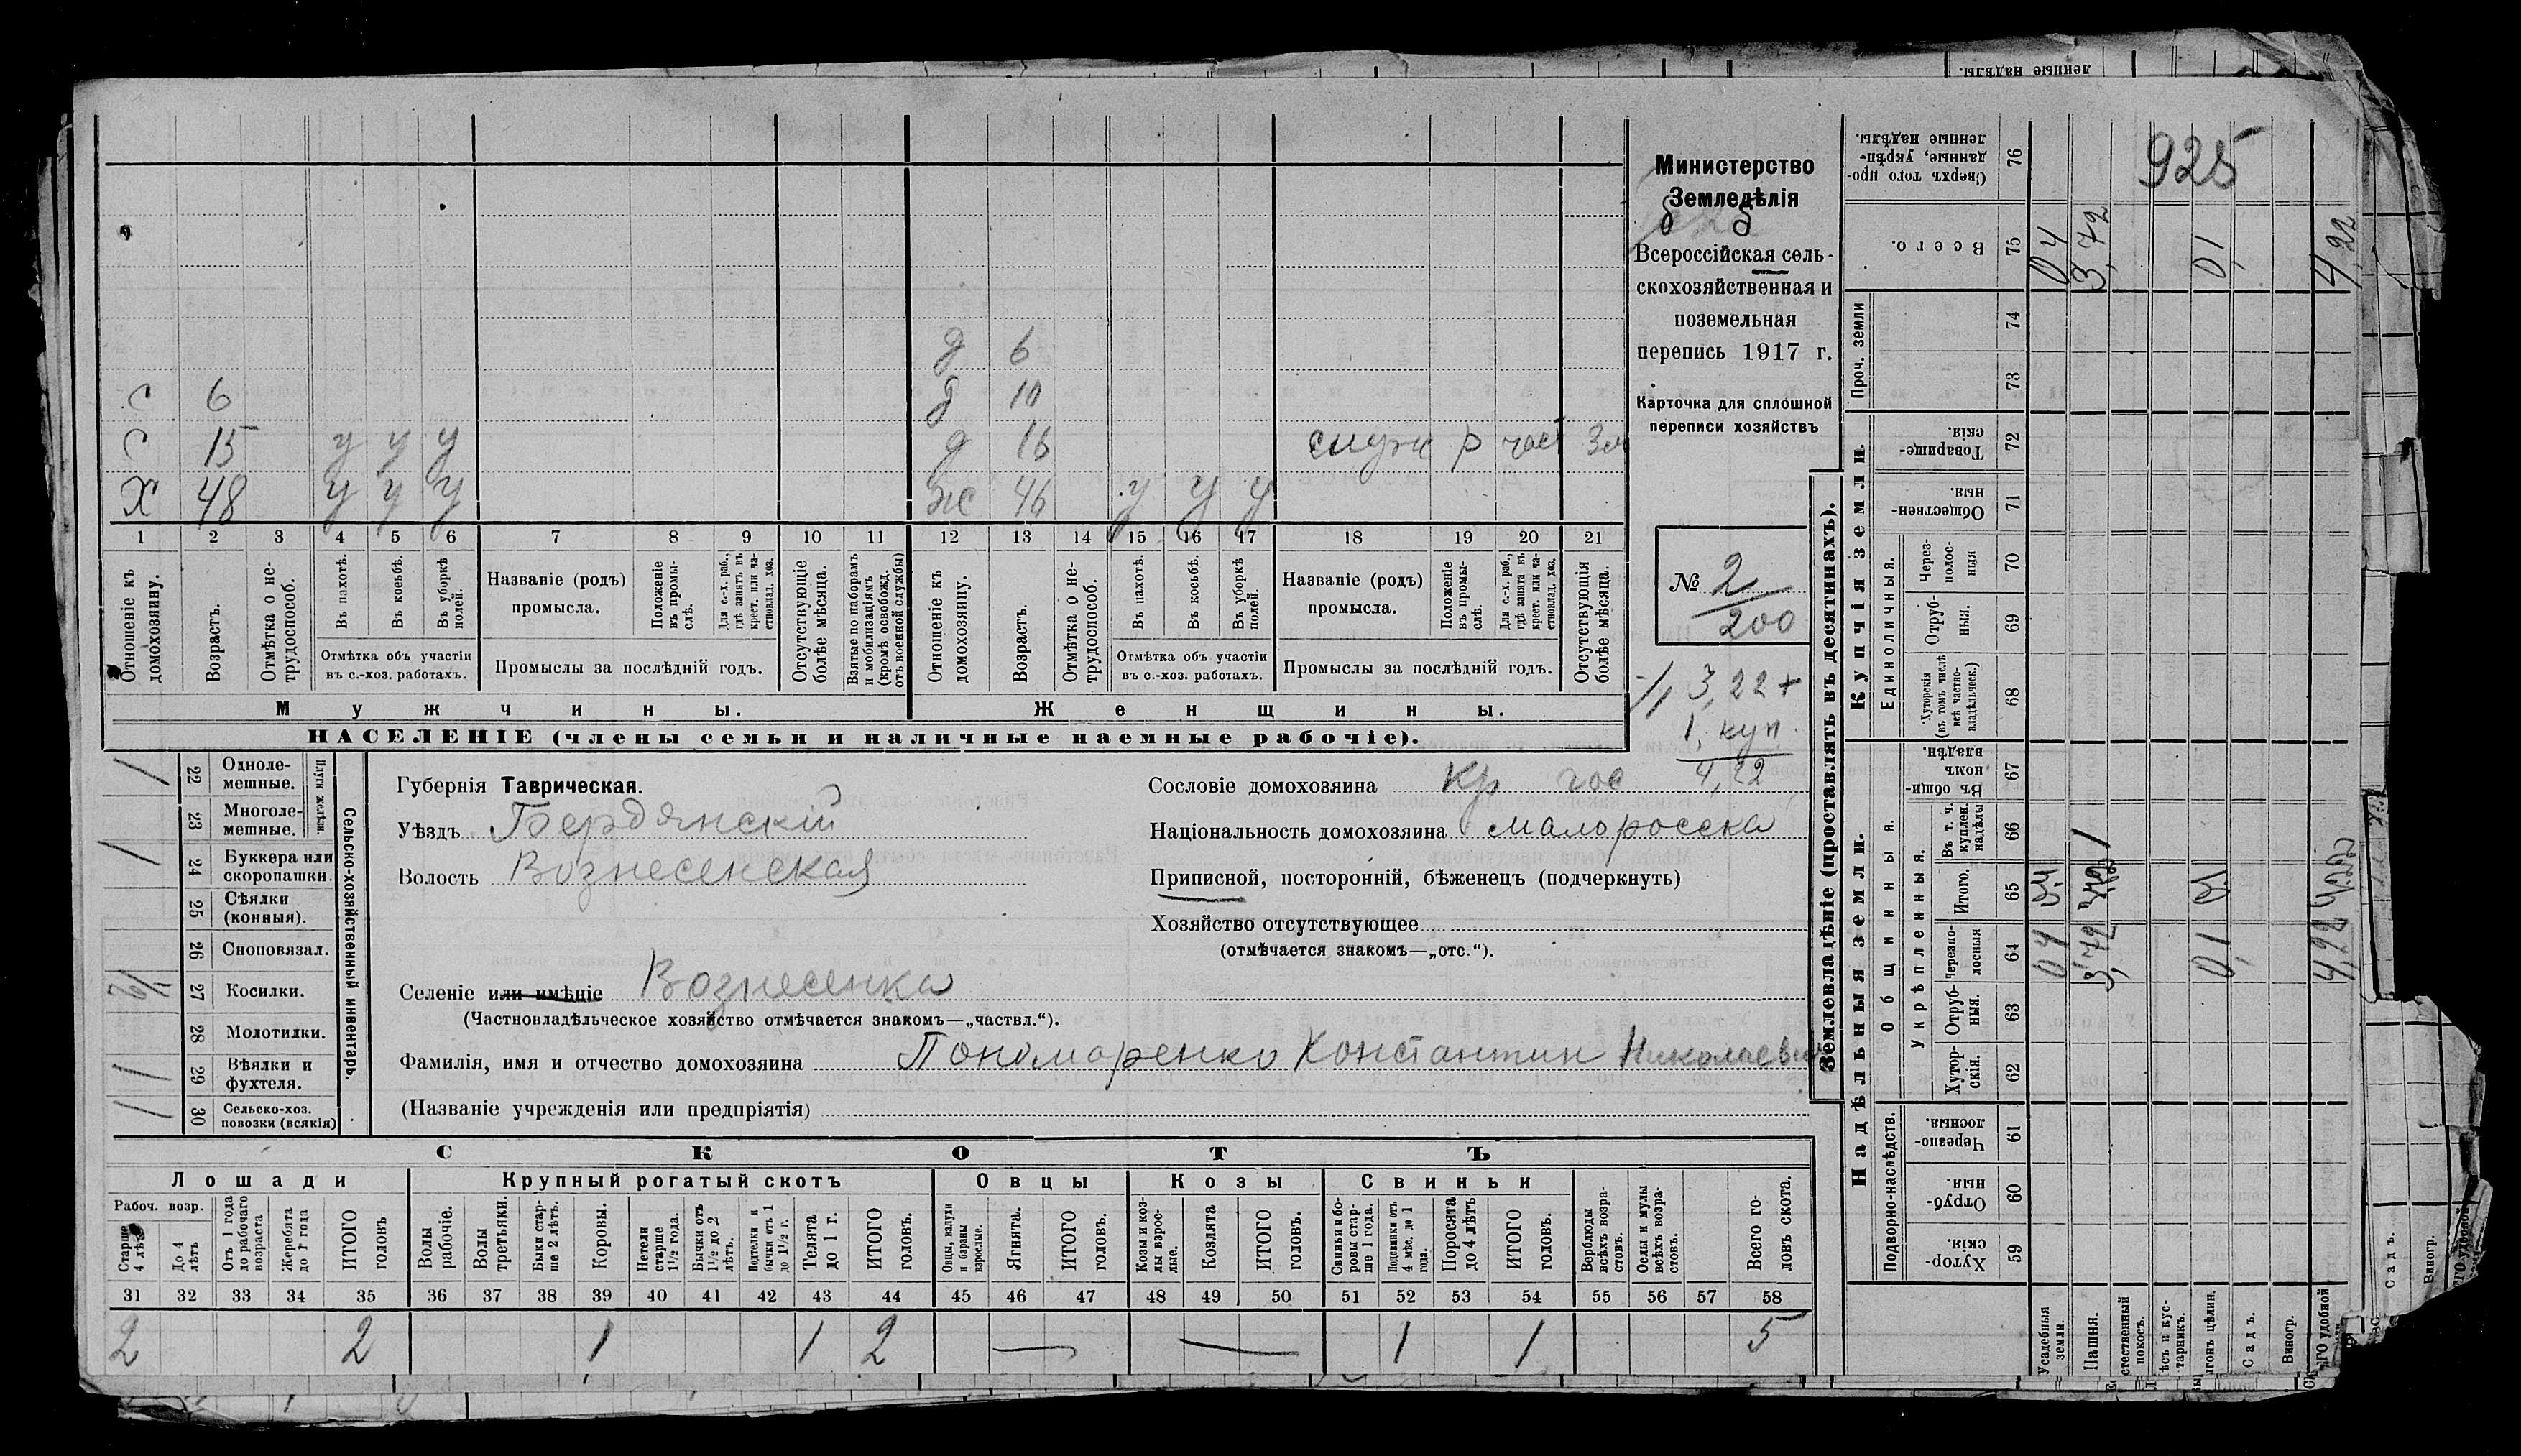 925
Министерство
Земледѣлія
Всероссійская сель-
скохозяйственная и
поземельная
перепись 1917 г.
Карточка для сплошной
переписи хозяйствъ
№ 2
200
3,22 +
1, куп.
4,22
д 6
с 6 д 10
с 15 у у у д 16 служ р част
Х 48 у у у ж 46 у у у
1 2 3 4 5 6 7 8 9 10 11 12 13 14 15 16 17 18 19 20 21
Отношеніе къ домохозяину.
Возрастъ.
Отмѣтка о не-трудоспособ.
Въ пахотѣ.
Въ косьбѣ.
Въ уборкѣ полей.
Отмѣтка объ участіи
въ с.-хоз. работахъ.
Названіе (родъ)
промысла.
Положеніе въ промы-слѣ.
Для с.-х. раб., гдѣ занятъ въ крест. или ча-стновлад. хоз.
Промыслы за послѣдній годъ.
Отсутствующіе болѣе мѣсяца.
Взятые по наборамъ и мобилизаціямъ (кромѣ освобожд. отъ военной службы)
Отношеніе къ домохозяину.
Возрастъ.
Отмѣтка о не-трудоспособ.
Въ пахотѣ.
Въ косьбѣ.
Въ уборкѣ полей.
Отмѣтка объ участіи
въ с.-хоз. работахъ.
Названіе (родъ)
промысла.
Положеніе въ промы-слѣ.
Для с.-х. раб., гдѣ занята въ крест. или ча-стновлад. хоз.
Промыслы за послѣдній годъ.
Отсутствующія болѣе мѣсяца.
Мужчины.
Женщины.
НАСЕЛЕНІЕ (члены семьи и наличные наемные рабочіе).
Сельско-хозяйственный инвентарь.
Плуги желѣзн.
1 22 Однолемешные.
23 Многолемешные.
1 24 Буккера или скоропашки.
25 Сѣялки (конныя).
26 Сноповязал.
27 Косилки.
28 Молотилки.
29 Вѣялки и фухтеля.
30 Сельско-хоз. повозки (всякія)
Губернія Таврическая.
Уѣздъ Бердянскій
Волость Вознесенская
Сословіе домохозяина Кр гос
Національность домохозяина малоросска
Приписной, посторонній, бѣженецъ (подчеркнуть)
Хозяйство отсутствующее
(отмѣчается знакомъ—„отс.“).
Селеніе или имѣніе Вознесенка
(Частновладѣльческое хозяйство отмѣчается знакомъ—„частвл.“).
Фамилія, имя и отчество домохозяина Пономаренко Константин Николаевич
(Названіе учрежденія или предпріятія)
СКОТЪ
Лошади
Крупный рогатый скотъ
Овцы
Козы
Свиньи
Рабоч. возр.
Старше 4 лѣтъ
До 4 лѣтъ
Отъ 1 года до рабочаго возраста
Жеребята до 1 года
ИТОГО головъ
Волы рабочіе.
Волы третьяки.
Быки стар-ше 2 лѣтъ.
Коровы.
Нетели старше 1½ года.
Бычки отъ 1½ до 2 лѣтъ.
Подтелки и бычки отъ 1 до 1½ г.
Телята до 1 г.
ИТОГО головъ.
Овцы, валухи и бараны взрослые.
Ягнята.
ИТОГО головъ.
Козы и коз-лы взрос-лые.
Козлята
ИТОГО головъ.
Свиньи и бо-ровы стар-ше 1 года.
Подсвинки отъ 4 мѣс. до 1 года.
Поросята до 4 лѣтъ
ИТОГО головъ.
Верблюды всѣхъ возра-стовъ.
Ослы и мулы всѣхъ возра-стовъ.
Всего го-ловъ скота.
31 32 33 34 35 36 37 38 39 40 41 42 43 44 45 46 47 48 49 50 51 52 53 54 55 56 57 58
2 2 1 1 2 — — 1 1 5
Землевладѣніе (проставлять въ десятинахъ).
Надѣльныя земли.
Купчія земли.
Проч. земли
Подворно-наслѣдств.
Общинныя.
Укрѣпленныя.
Единоличныя.
Хутор-скія. 59
Отруб-ныя. 60
Черезпо-лосныя. 61
Хутор-скія. 62
Отруб-ныя. 63
Черезпо-лосныя 64
Итого. 65
Въ т. ч. куплен. надѣлы 66
Въ общи-номъ владѣн. 67
Хуторскія (въ томъ числѣ всѣ частно-владѣльческ.) 68
Отруб-ныя. 69
Через-полос-ныя 70
Обществен-ныя. 71
Товарище-скія. 72
73
74
Всего. 75
Сверхъ того про-данные, укрѣп-ленные надѣлы. 76
Усадебныя земли. 0,4 0,4
Пашня. 3,72 1 3,72
стественный покосъ.
ѣсъ и кус-тарникъ.
ыгонъ цѣлин. 0,1 0,1
Садъ.
Виногр.
го удобной 4,22 4,22 4,22
Садъ.
Виногр.
ленные надѣлы.